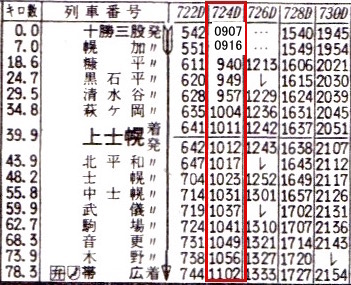 キロ数 列車番号 722D 724D 726D 728D 730D
0.0 十勝三股発 542 0907 … 1540 1945
7.0 幌加〃 551 0916 … 1549 1954
18.6 糠平〃 611 940 1213 1606 2021
24.7 黒石平〃 620 949 レ 1615 2030
29.5 清水谷〃 628 957 1229 1624 2039
34.8 萩ケ岡〃 635 1004 1236 1631 2045
39.9 上士幌着 641 1011 1242 1637 2051
発 642 1012 1243 1638 2107
43.9 北平和〃 647 1017 レ 1643 2112
48.2 士幌〃 704 1023 1252 1649 2117
55.8 中士幌〃 714 1031 1301 1657 2126
59.9 武儀〃 719 1037 レ 1702 2131
62.7 駒場〃 724 1041 1310 1707 2136
68.3 音更〃 731 1049 1321 1714 2143
73.9 木野〃 738 1056 1327 1720 レ
78.3 弁 帯広着 744 1102 1333 1727 2154